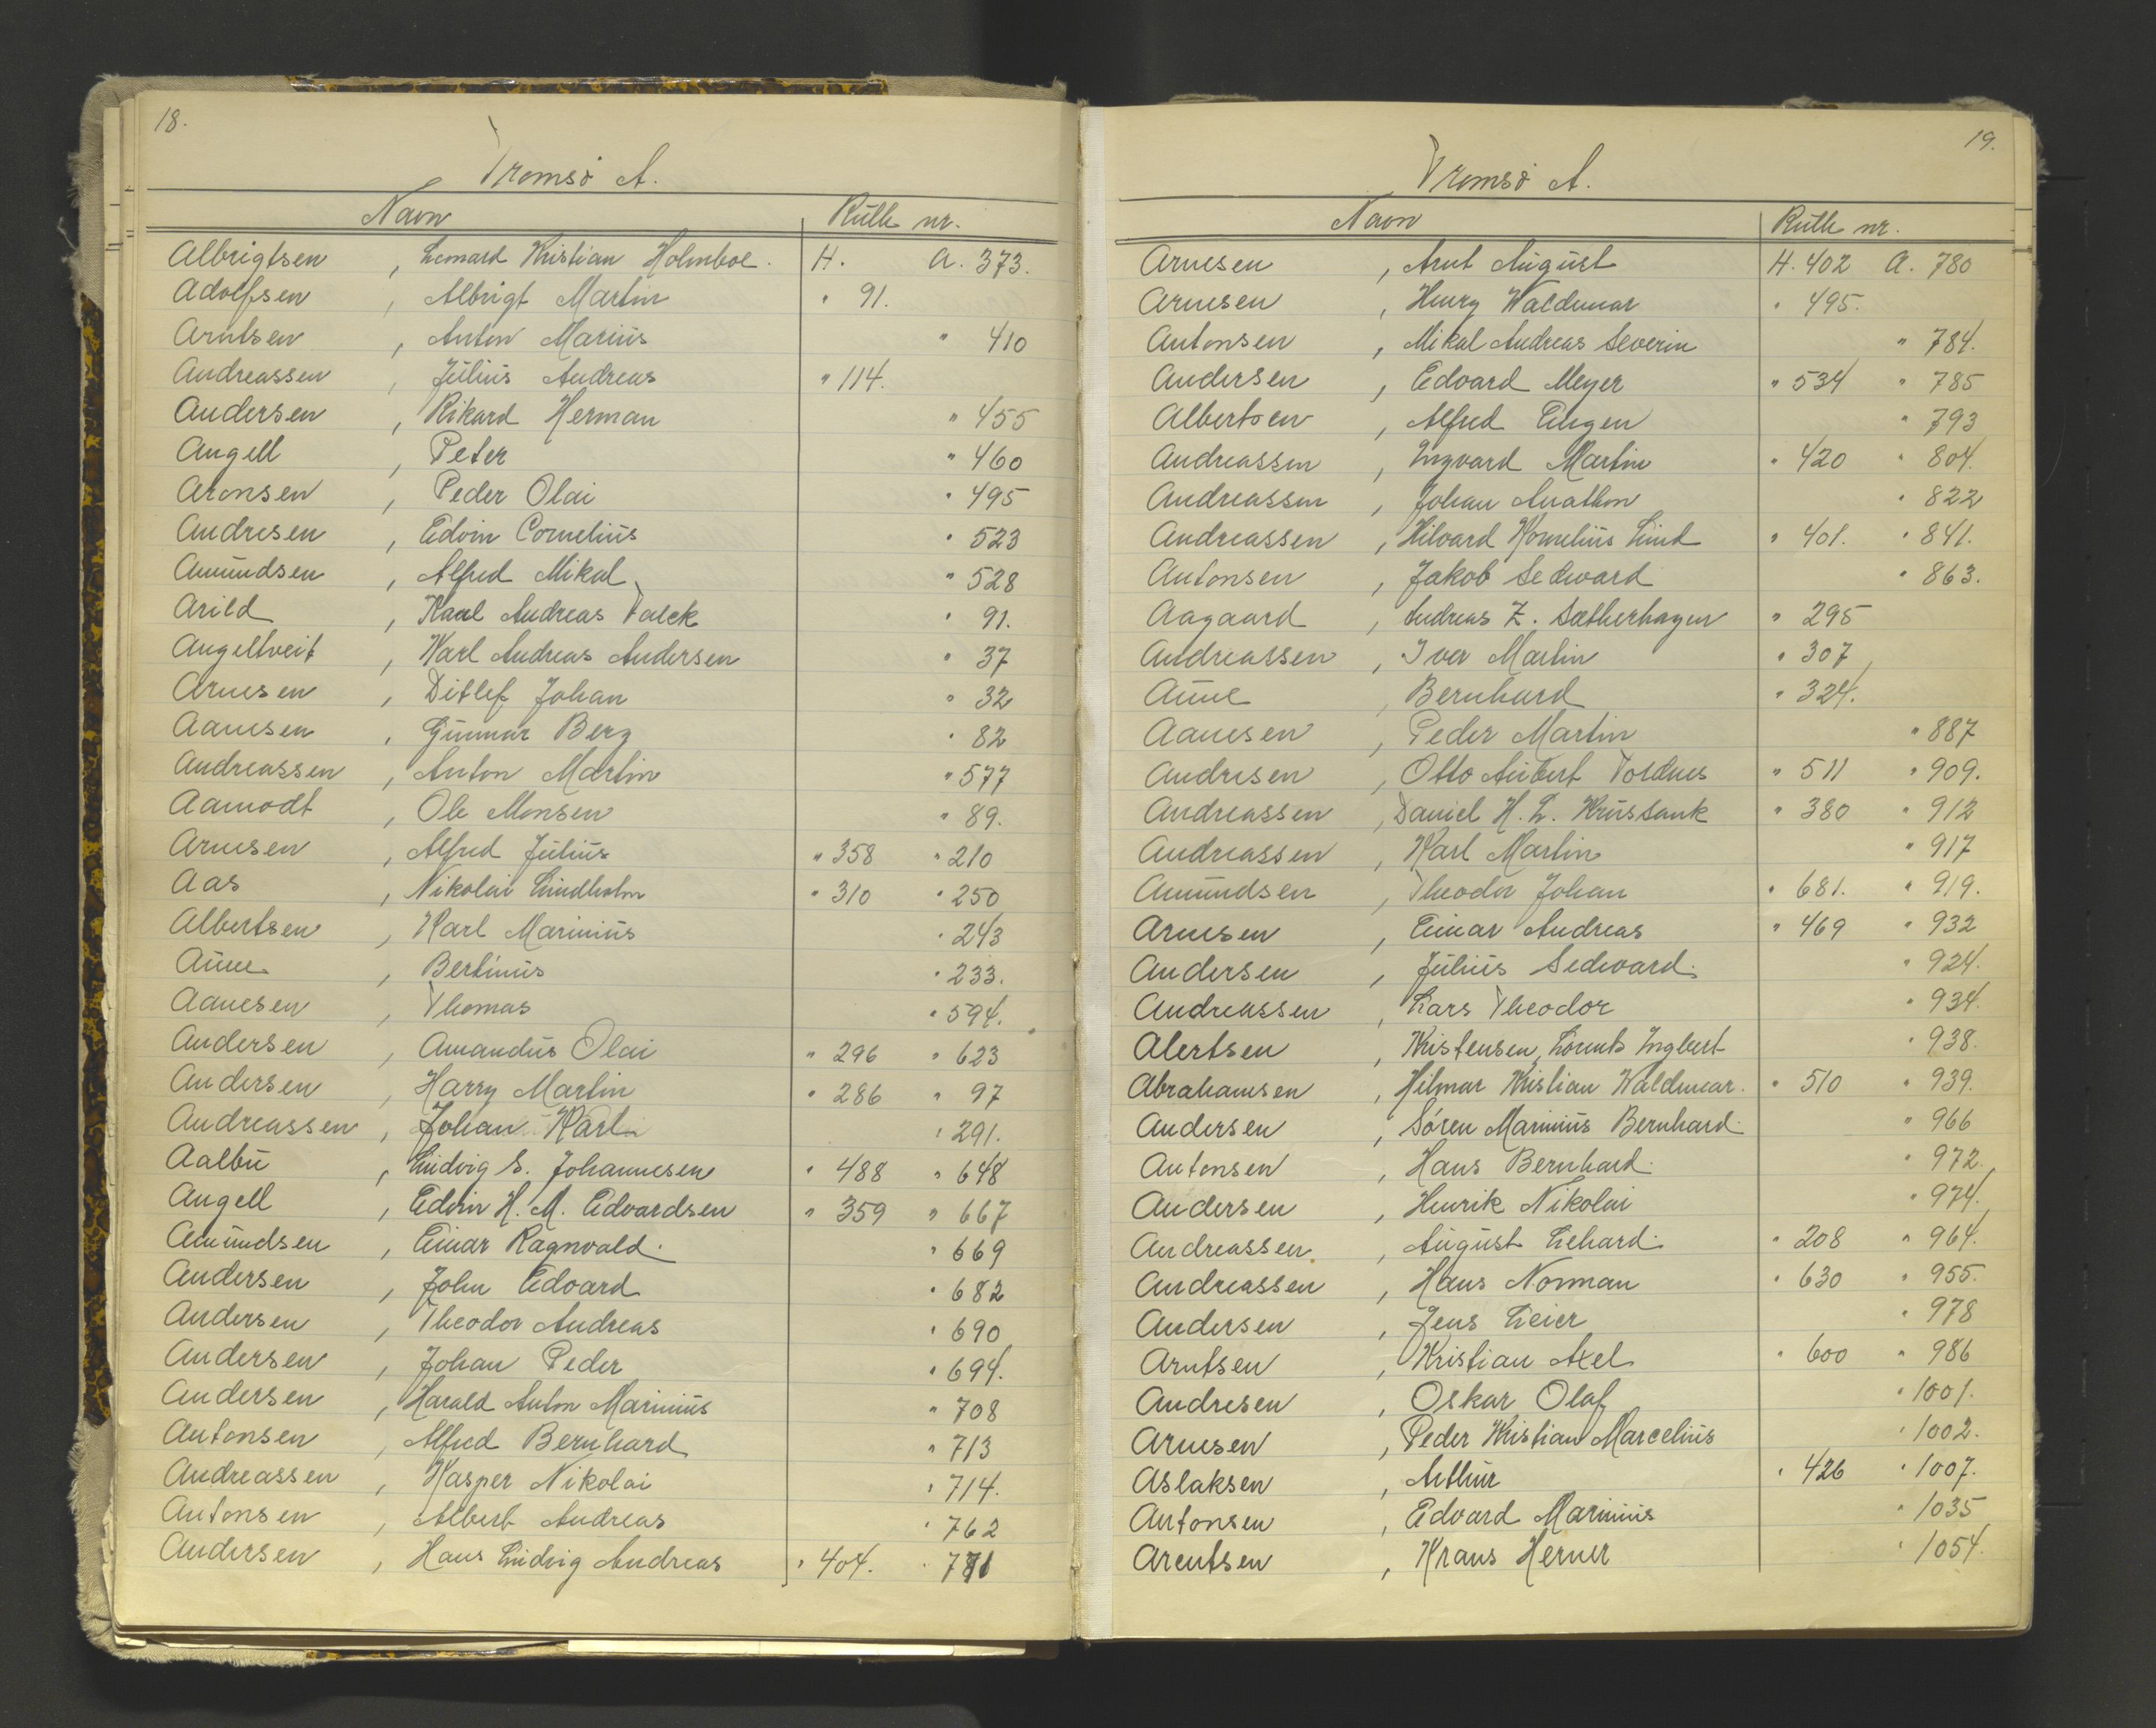 18.
Tromsö A.
Navn Rulle nr.
Albrigtsen , Leonard Kristian Holmboe. H. A. 373.
Adolfsen , Albrigt Martin " 91.
Arntsen , Anton Marius " 410
Andreassen , Julius Andreas " 114.
Andersen , Rikard Herman " 455
Angell , Peter " 460
Aronsen , Peder Olai " 495
Andresen , Edvin Cornelius " 523
Amundsen , Alfred Mikal " 528
Arild , Karl Andreas Falck " 91.
Angeltveit , Karl Andreas Andersen " 37
Arnesen , Ditlef Johan " 32
Aanesen , Gunnar Berg " 82
Andreassen , Anton Martin " 577
Aamodt , Ole Monsen " 89.
Arnesen , Alfred Julius " 358 " 210
Aas , Nikolai Lindholm " 310 " 250
Albertsen , Karl Marinius " 243
Aune , Bertinus " 233.
Aanesen , Thomas " 594.
Andersen , Amandus Olai " 296 " 623
Andersen , Harry Martin " 286 " 97
Andreassen , Johan Karl " 291.
Aalbu , Ludvig S. Johannesen " 488 " 648
Angell , Edvin H. M. Edvardsen " 359 " 667
Amundsen , Einar Ragnvald. " 669
Andersen , John Edvard " 682
Andersen , Theodor Andreas " 690
Andersen , Johan Peder " 694.
Andersen , Harald Anton Marinius " 708
Antonsen , Alfred Bernhard " 713
Andreassen , Kasper Nikolai " 714.
Antonsen , Albert Andreas " 762
Andersen , Hans Ludvig Andreas " 404. " 771
19.
Tromsö A.
Navn Rulle nr.
Arnesen , Arnt August H. 402 A. 780
Arnesen , Henry Waldemar " 495.
Antonsen , Mikal Andreas Severin " 784.
Andersen , Edvard Meyer " 534 " 785
Albertsen , Alfred Eugen " 793
Andreassen , Ingvard Martin " 420 " 804.
Andreassen , Johan Anathon " 822
Andreassen , Hilvard Kornelius Lind " 401. " 841.
Antonsen , Jakob Sedvard " 863.
Aagaard , Andreas Z. Sætherhagen " 295
Andreassen , Iver Martin " 307
Aune , Bernhard " 324.
Aanesen , Peder Martin " 887
Andresen , Otto Toldnes " 511 " 909.
Andreassen , Daniel H. L. " 380 " 912
Andreassen , Karl Martin " 917
Amundsen , Theodor Johan " 681. " 919.
Arnesen , Einar Andreas " 469 " 932
Andersen , Julius Sedvard. " 924.
Andreassen , Lars Theodor " 934.
Alertsen , Kristensen, Lorents Ingbert " 938.
Abrahamsen , Hilmar Kristian Waldemar. " 510 " 939.
Andersen , Sören Marinius Bernhard. " 966
Antonsen , Hans Bernhard. " 972.
Andersen , Henrik Nikolai " 974.
Andreassen , August Lehard. " 208 " 964.
Andreassen , Hans Norman " 630 " 955.
Andersen , Jens Leier " 978
Arntsen , Kristian Axel " 600 " 986
Andresen , Oskar Olaf " 1001.
Arnesen , Peder Kristian Marcelius " 1002.
Aslaksen , Arthur " 426 " 1007.
Antonsen , Edvard Marinius " 1035
Arentsen , Kraus Herner " 1054.